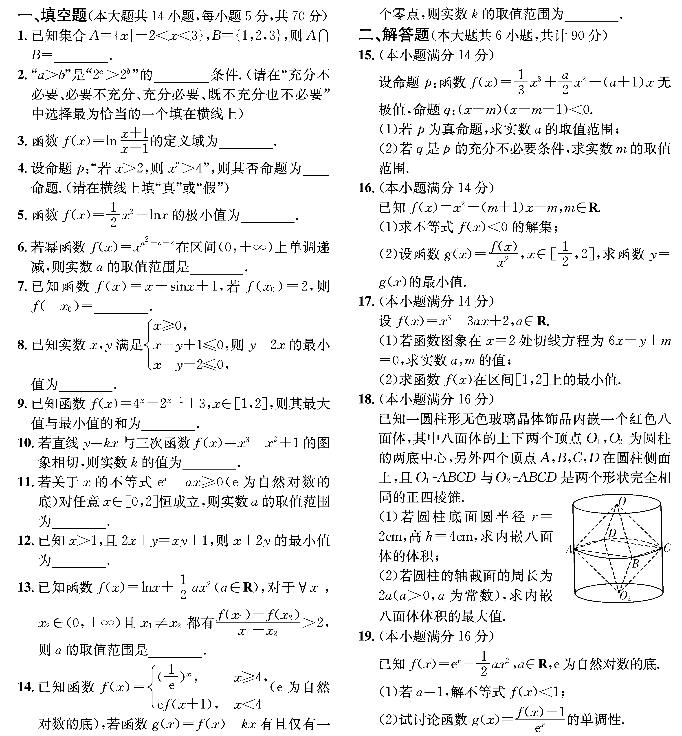 一、填空题(本大题共14小题,每小题5分,共70分)
1.已知集合A={x|-2<x<3},B={1,2,3},则A∩
B=________.
2."a>b"是"2ᵃ>2ᵇ"的________条件.(请在"充分不
必要、必要不充分、充分必要、既不充分也不必要"
中选择最为恰当的一个填在横线上)
3.函数f(x)=ln(x+1)/(x-1)的定义域为________.
4.设命题p:"若x>2,则x²>4",则其否命题为____
命题.(请在横线上填"真"或"假")
5.函数f(x)=1/2x²-lnx的极小值为________.
6.若幂函数f(x)=在区间(0,+∞)上单调递
减,则实数a的取值范围是________.
7.已知函数f(x)=x+sinx+1,若f(x₀)=2,则
f( x₀)=________.
8.已知实数x,y满足{x≥0, x y+1≤0, x y-2≤0,则y 2x的最小
值为________.
9.已知函数f(x)=4ˣ-+3,x∈[1,2],则其最大
值与最小值的和为________.
10.若直线y=kx与三次函数f(x)=x³ x²+1的图
象相切,则实数k的值为________.
11.若关于x的不等式eˣ ax≥0(e为自然对数的
底)对任意x∈[0,2]恒成立,则实数a的取值范围
为________.
12.已知x>1,且2x+y=xy+1,则x+2y的最小值
为________.
13.已知函数f(x)=lnx+1/2ax²(a∈R),对于∀x₁,
x₂∈(0,+∞)且x₁≠x₂都有(f(x₁)-f(x₂))/(x₁-x₂)>2,
则a的取值范围是________.
14.已知函数f(x)={(1/e)ˣ, x≥4, ef(x+1), x<4(e为自然
对数的底),若函数g(x)=f(x) kx有且仅有一
个零点,则实数k的取值范围为________.
二、解答题(本大题共6小题,共计90分)
15.(本小题满分14分)
设命题p:函数f(x)=1/3x³+a/2x²-(a+1)x无
极值,命题q:(x-m)(x-m-1)<0.
(1)若p为真命题,求实数a的取值范围;
(2)若q是p的充分不必要条件,求实数m的取值
范围.
16.(本小题满分14分)
已知f(x)=x²-(m+1)x-m,m∈R.
(1)求不等式f(x)<0的解集;
(2)设函数g(x)=f(x)/x²,x∈[1/2,2],求函数y=
g(x)的最小值.
17.(本小题满分14分)
设f(x)=x³ 3ax+2,a∈R.
(1)若函数图象在x=2处切线方程为6x-y+m
=0,求实数a,m的值;
(2)求函数f(x)在区间[1,2]上的最小值.
18.(本小题满分16分)
已知一圆柱形无色玻璃晶体饰品内嵌一个红色八
面体,其中八面体的上下两个顶点O₁,O₂为圆柱
的两底中心,另外四个顶点A,B,C,D在圆柱侧面
上,且O₁-ABCD与O₂-ABCD是两个形状完全相
同的正四棱锥.
(1)若圆柱底面圆半径r=
2cm,高h=4cm,求内嵌八面
体的体积;
(2)若圆柱的轴截面的周长为
2a(a>0,a为常数),求内嵌
八面体体积的最大值.
O
D
A
C
B
O₂
19.(本小题满分16分)
已知f(x)=eˣ-1/2ax²,a∈R,e为自然对数的底.
(1)若a=1,解不等式f(x)<1;
(2)试讨论函数g(x)=(f(x)-1)/eˣ的单调性.